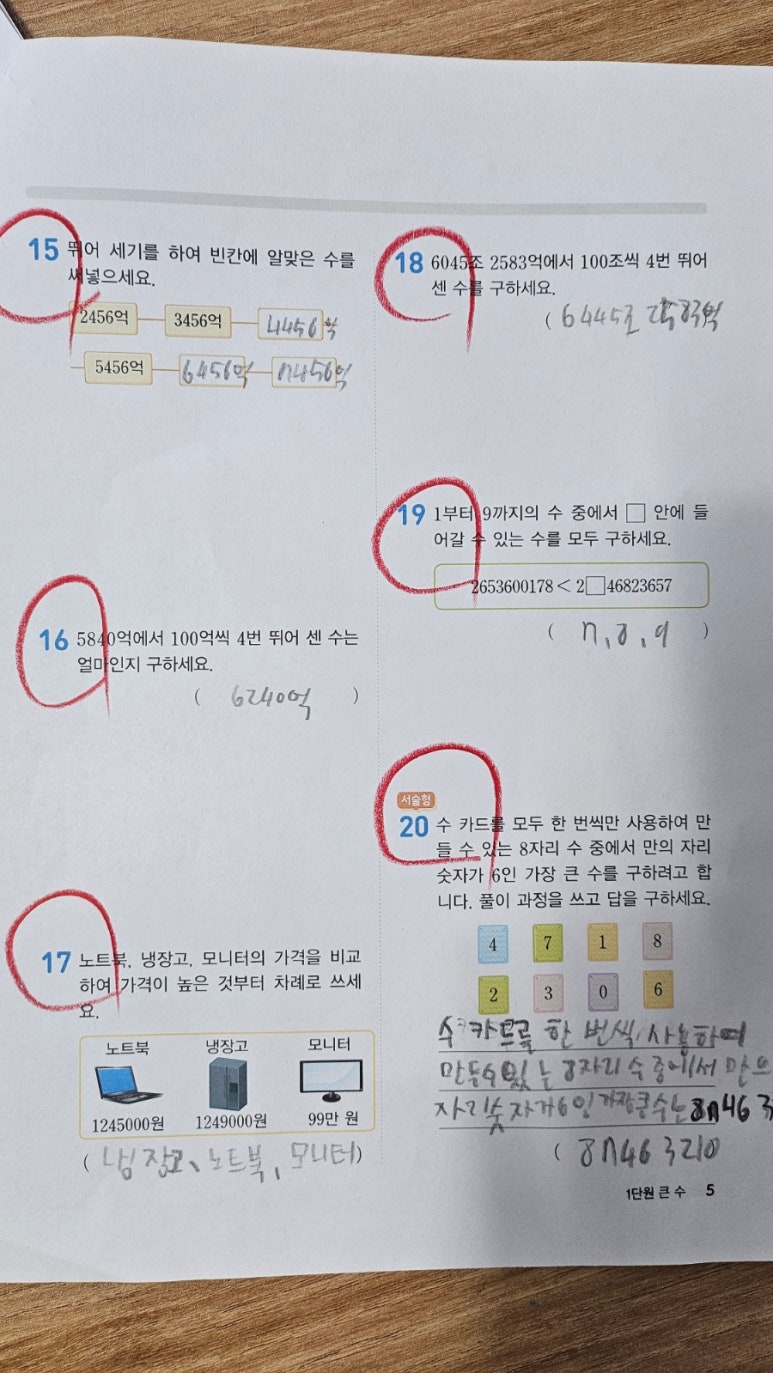 15 뛰어 세기를 하여 빈칸에 알맞은 수를
써넣으세요.
2456억 3456억 4456억
5456억 6456억 7456억
16 5840억에서 100억씩 4번 뛰어 센 수는
얼마인지 구하세요.
( 6240억 )
17 노트북, 냉장고, 모니터의 가격을 비교
하여 가격이 높은 것부터 차례로 쓰세
요.
노트북 냉장고 모니터
1245000원 1249000원 99만 원
( 냉장고, 노트북, 모니터)
18 6045조 2583억에서 100조씩 4번 뛰어
센 수를 구하세요.
( 6445조 2583억
19 1부터 9까지의 수 중에서 □ 안에 들
어갈 수 있는 수를 모두 구하세요.
2653600178 < 2□46823657
( 7, 8, 9 )
서술형
20 수 카드를 모두 한 번씩만 사용하여 만
들 수 있는 8자리 수 중에서 만의 자리
숫자가 6인 가장 큰 수를 구하려고 합
니다. 풀이 과정을 쓰고 답을 구하세요.
4 7 1 8
2 3 0 6
수 카드를 한 번씩 사용하여
만들 수 있는 8자리 수 중에서 만으
자리 숫자가 6인 가장 큰 수는 8746 3
( 8746 3210
1단원 큰 수 5